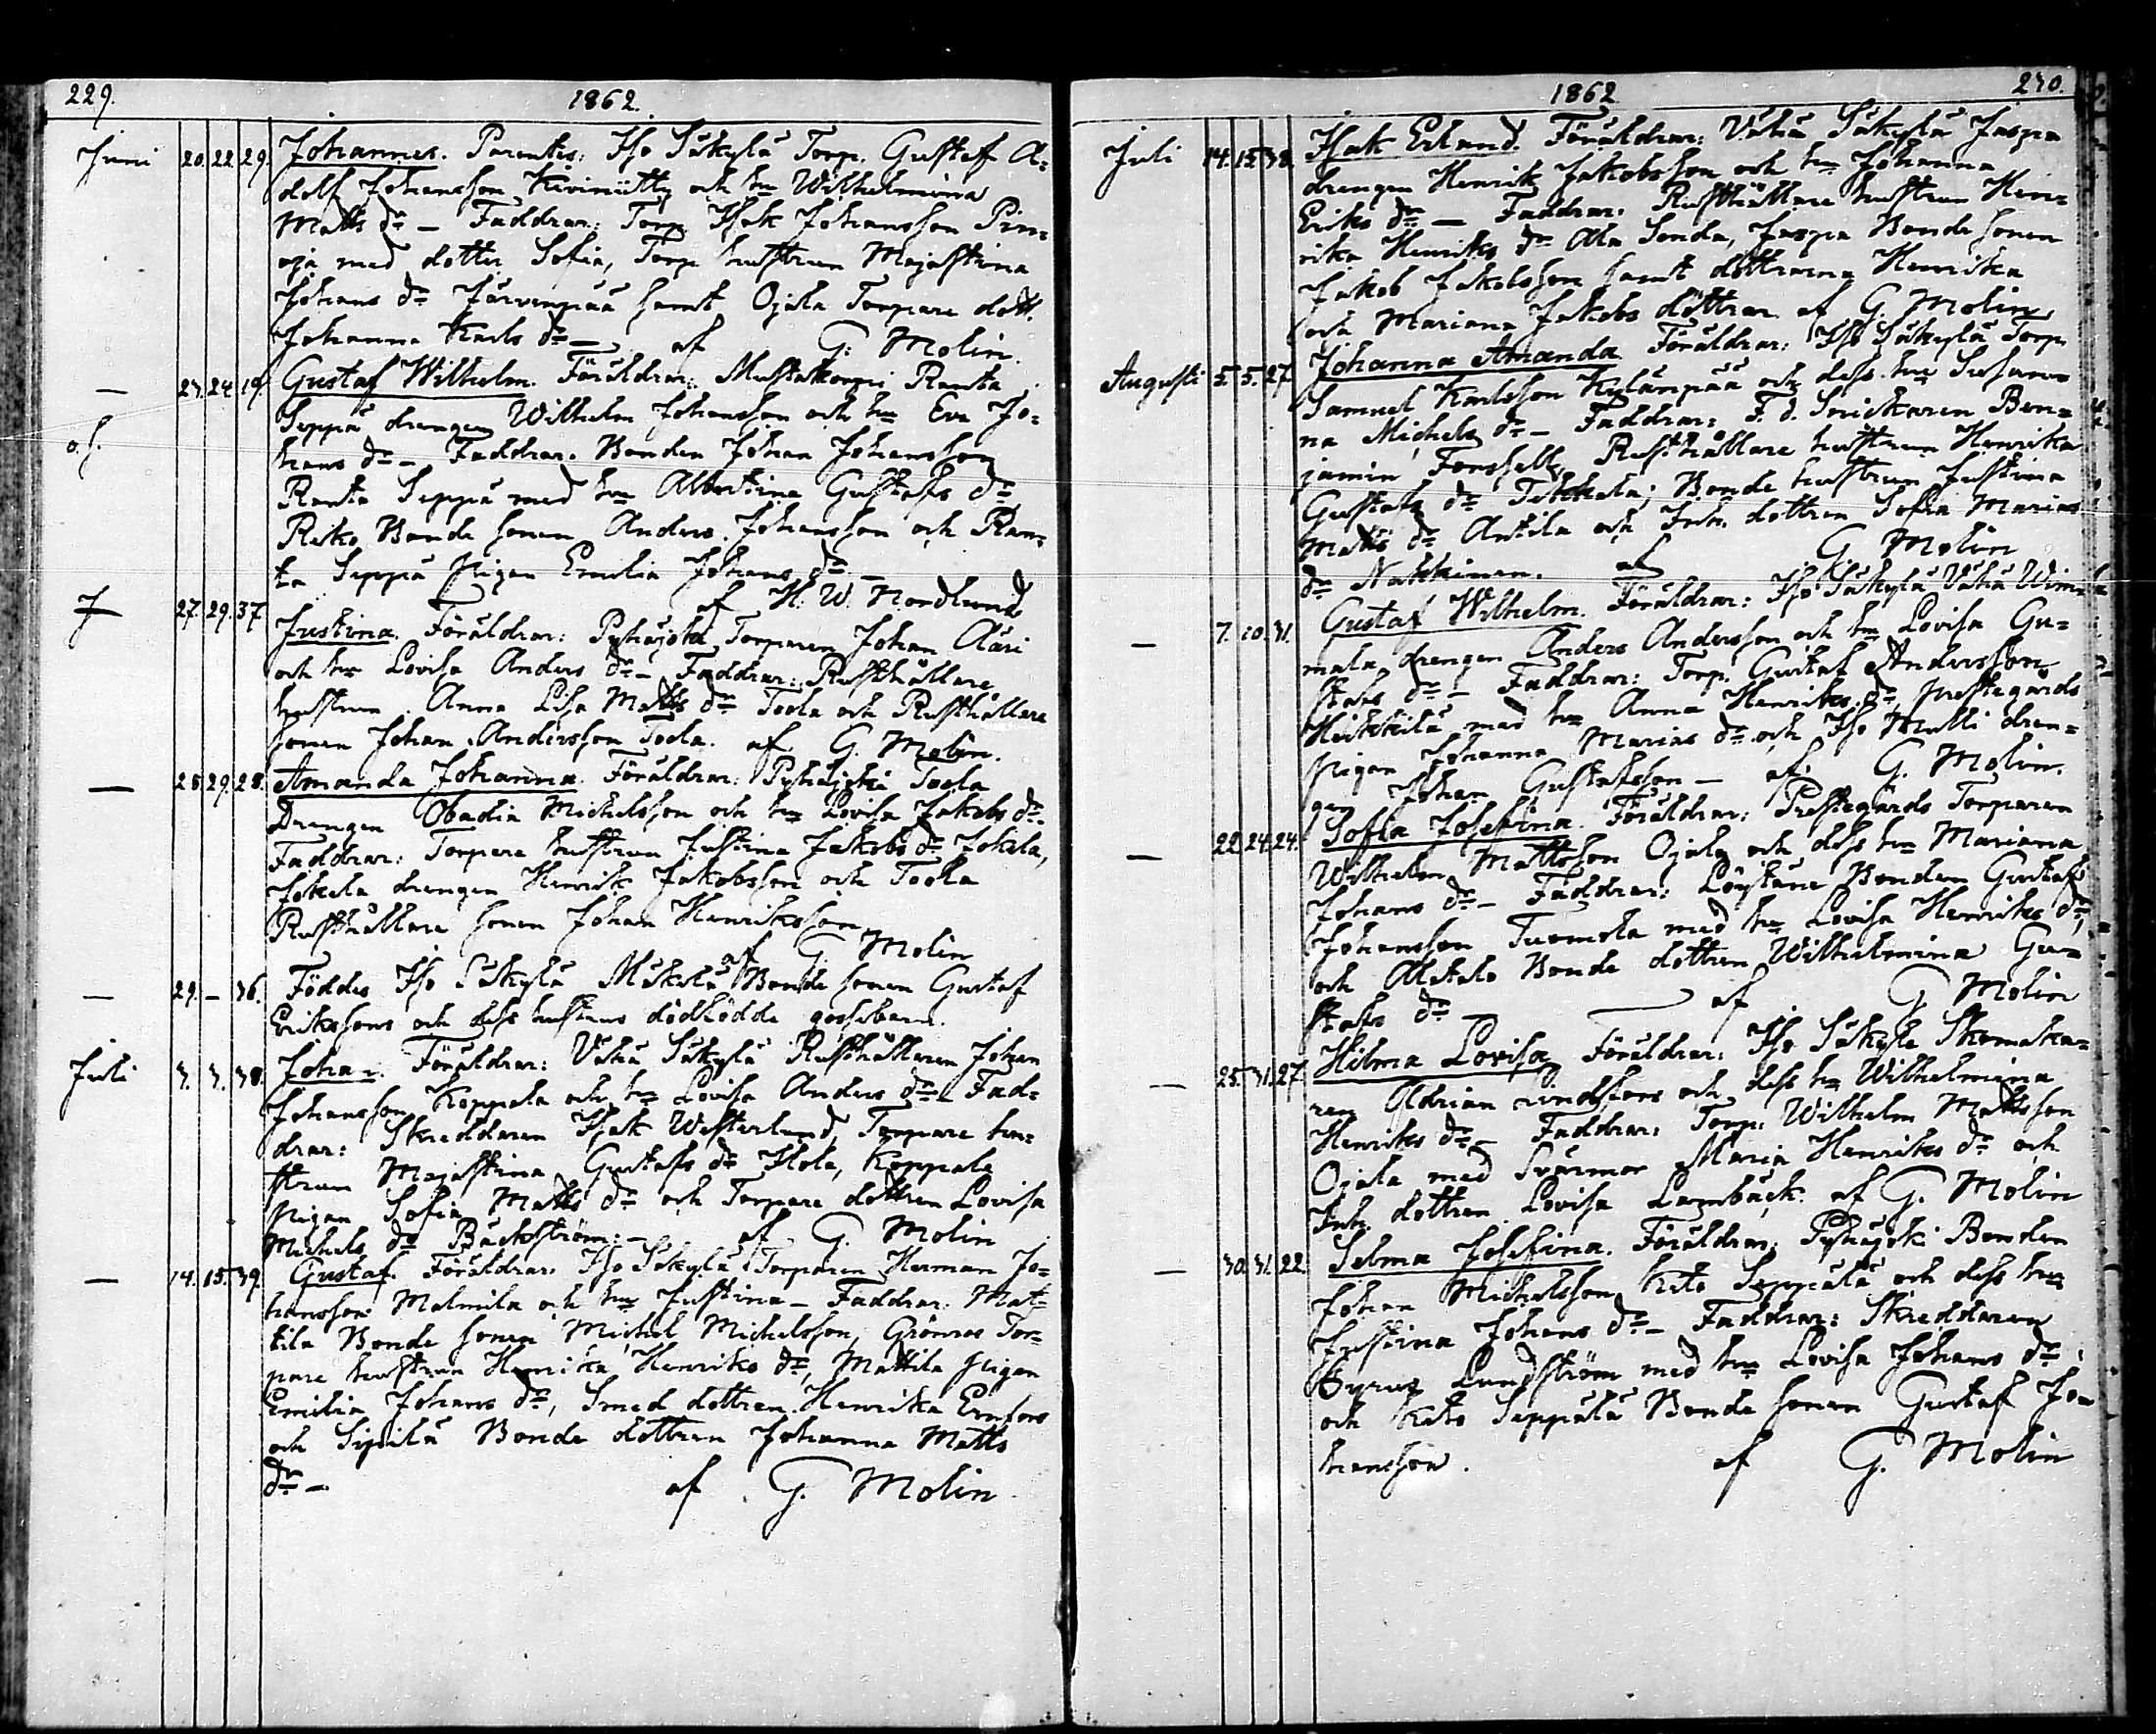 229.
1862.
Juni 20. 22. 29. Johannes. Parentes: Iso Säkylä Torp. Gustaf A=
dolf Johansson Kivinütty och hu Wilhelmina
Matts dr – Faddrar: Torp. Isak Johansson Pin=
oja med dotter Sofia, Torp hustrun Majastina
Johans dr Järvenpää samt Ojala Torpare dott.
Johanna Karls dr – af G: Molin.
— 23. 24. 19. Gustaf Wilhelm. Föräldrar: Mustakorpi Ranta
Seppä drengen Wilhelm Johansson och hu Eva Jo=
hans dr – Faddrar. Bonden Johan Johansson
Ranta Seppä med hu Albertina Gustafs dr
Bonde sonen Anders Johansson och Ran=
ta Seppä Pigan Emilia Johans dr –
af H. W. Nordlund
27. 29. 37. Justina. Föräldrar: Pyhäjoki Torparen Johan Ääri
och hu Lovisa Anders dr – Faddrar: Rusthållare
hustrun Anna Lisa Matts dr Toola och Rusthållare
sonen Johan Andersson Toola. af G. Molin.
— 28. 29. 28. Amanda Johanna. Föräldrar: Pyhäjoki Toola
Drengen Obadia Michelsson och hu Lovisa Jakobs dr
Faddrar: Torpare hustrun Justina Jakobs dr Jokela,
Jokela drengen Henrik Jakobsson och Toola
Rusthållare sonen Johan Henriksson
af G. Molin
— 29. – 36. Föddes Iso Säkylä Mäkelä Bonde sonen Gustaf
Erikssons och dess hustrus dödfödde gossebarn.
Juli 3. 3. 38. Johan. Föräldrar: Vähä Säkylä Rusthållaren Johan
Johansson Koppala och hu Lovisa Anders dr – Fad=
drar: Skreddaren Isak Westerlund, Torpare hu=
strun Majastina Gustafs dr Hola, Koppala
pigan Sofia Matts dr och Torpare dottren Lovisa
Michels dr Bäckström: – af G. Molin
— 14. 15. 39. Gustaf. Föräldrar: Iso Säkylä Torparen Herman Jo=
hansson Malmila och hu Justina – Faddrar. Mat=
tila Bonde sonen Michel Michelsson, Grönros Tor=
pare hustrun Henrika Henriks dr, Mattila pigan
Emilia Johans dr, Smed dottren Henrika Ernfors
och Sipilä Bonde dottren Johanna Matts
dr – af G. Molin
230.
1862
Juli 14. 15. 38. Isak Erland. Föräldrar: Vähä Säkylä Jaspa
drengen Henrik Jakobsson och hu Johanna
Eriks dr – Faddrar. Rusthållare hustrun Hen=
rika Henriks dr Ala Sonda, Jaspa Bonde sonen
Jakob Jakobsson samt döttrarna Henrika
och Mariana Jakobs döttrar af G. Molin
Augusti 5. 5. 27. Johanna Amanda Föräldrar: Iso Säkylä Torp.
Samuel Karlsson Kylänpää och dess hu Susan=
na Michels dr – Faddrar: F. d. Snickaren Ben=
jamin Forssell, Rusthållare hustrun Henrika
Gustafs dr Takkala; Bonde hustrun Justina
Matts dr Antila och Inh. dottren Sofia Marias
dr Nakkinen. af G. Molin
— 7. 10. 31. Gustaf Wilhelm. Föräldrar: Iso Säkylä Vähä Wim=
mala drengen Anders Andersson och hu Lovisa Gu=
stafs dr – Faddrar: Torp. Gustaf Andersson
Heikkilä med hu Anna Henriks dr, prestegårds
Pigan Johanna Marias dr och Iso Mulli dren=
gen Johan Gustafsson – af G. Molin.
— 22. 24. 24. Sofia Josefina. Föräldrar: Prestegårds Torparen
Wilhelm Mattsson Ojala och dess hu Mariana
Johans dr – Faddrar: Löystäne Bonden Gustafs
Johansson Tuomola med hu Lovisa Henriks dr,
och Alatalo Bonde dottren Wilhelmina Gu=
stafs dr – af G. Molin
— 25. 31. 27. Hilma Lovisa Föräldrar: Iso Säkylä Skomaka=
ren Adrian Lindfors och dess hu Wilhelmina
Henriks dr – Faddrar: Torp. Wilhelm Mattsson
Ojala med Svärmor Maria Henriks dr och
Inh. dottren Lovisa Lambäck. af G. Molin
— 30. 31. 22. Selma Josefina. Föräldrar; Pyhäjoki Bonden
Johan Michelsson Keto Seppälä och dess hu
Justina Johans dr – Faddrar: Skreddaren
Cyrus Lundström med hu Lovisa Johans dr
och Keto Seppälä Bonde sonen Gustaf Jo=
hansson. af G. Molin